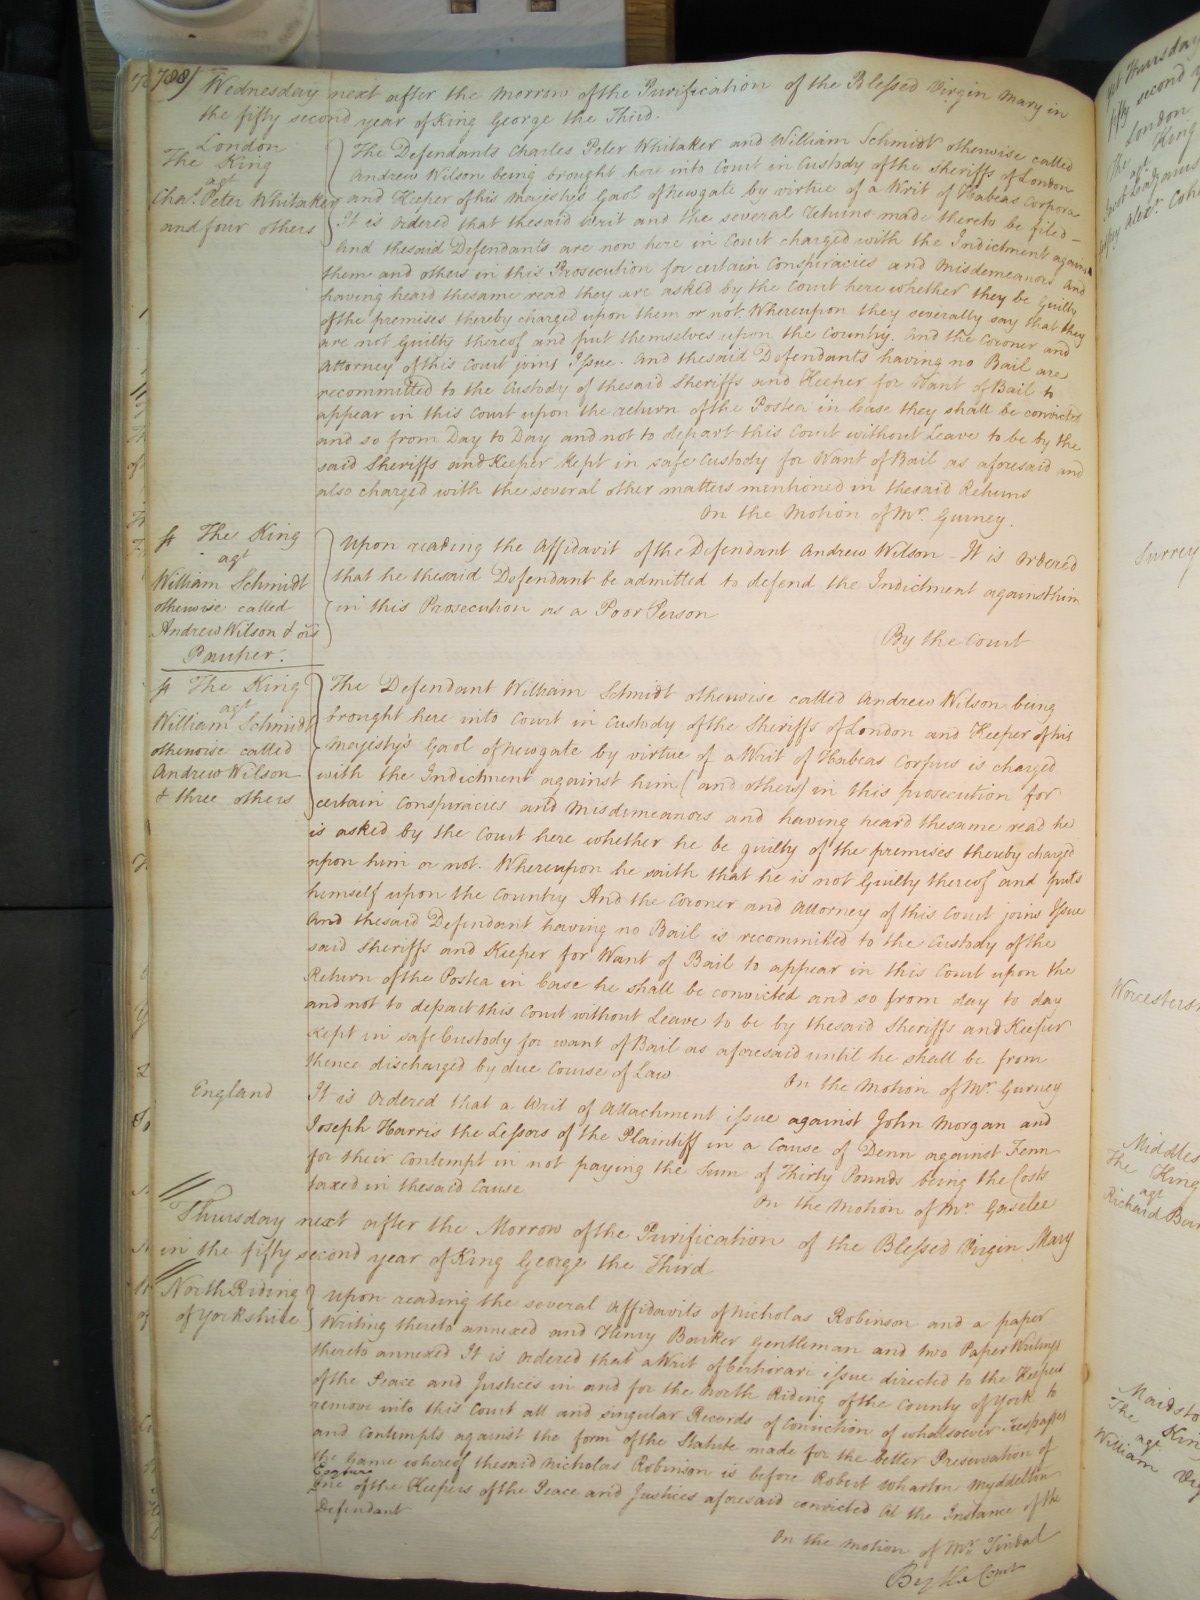 788)
Wednesday next after the Morrow of the Purification of the Blessed Virgin Mary in
the fifty second year of King George the Third.
London
The King
agt
Chas. Peter Whitaker
and four others
The Defendants Charles Peter Whitaker and William Schmidt otherwise called
Andrew Wilson being brought here into Court in Custody of the Sheriffs of London
and Keeper of his Majesty's Gaol of Newgate by virtue of a Writ of Habeas Corpora
It is Ordered that the said Writ and the several returns made thereto be filed –
And the said Defendants are now here in Court charged with the Indictment against
them and others in this Prosecution for certain Conspiracies and Misdemeanors and
having heard the same read they are asked by the Court here whether they be Guilty
of the premises thereby charged upon them or not. Whereupon they severally say that they
are not Guilty thereof and put themselves upon the Country. And the Coroner and
Attorney of this Court joins Issue. And the said Defendants having no Bail are
recommitted to the Custody of the said Sheriffs and Keeper for Want of Bail to
appear in this Court upon the return of the Postea in Case they shall be convicted
and so from Day to Day and not to depart this Court without Leave to be by the
said Sheriffs and Keeper kept in safe Custody for Want of Bail as aforesaid and
also charged with the several other matters mentioned in the said Returns
On the Motion of Mr. Gurney.
The King
agt
William Schmidt
otherwise called
Andrew Wilson & ors
Pauper.
Upon reading the Affidavit of the Defendant Andrew Wilson – It is Ordered
that he the said Defendant be admitted to defend the Indictment against him
in this Prosecution as a Poor Person
By the Court
The King
agt
William Schmidt
otherwise called
Andrew Wilson
& three others
The Defendant William Schmidt otherwise called Andrew Wilson being
brought here into Court in Custody of the Sheriffs of London and Keeper of his
Majesty's Gaol of Newgate by virtue of a Writ of Habeas Corpus is charged
with the Indictment against him (and others) in this prosecution for
certain Conspiracies and Misdemeanors and having heard the same read he
is asked by the Court here whether he be guilty of the premises thereby charged
upon him or not. Whereupon he saith that he is not Guilty thereof and puts
himself upon the Country And the Coroner and Attorney of this Court joins Issue
And the said Defendant having no Bail is recommitted to the Custody of the
said Sheriffs and Keeper for Want of Bail to appear in this Court upon the
Return of the Postea in Case he shall be convicted and so from day to day
and not to depart this Court without Leave to be by the said Sheriffs and Keeper
kept in safe Custody for want of Bail as aforesaid until he shall be from
thence discharged by due Course of Law
On the Motion of Mr. Gurney
England
It is Ordered that a Writ of Attachment issue against John Morgan and
Joseph Harris the Lessors of the Plaintiff in a Cause of Denn against Fenn
for their Contempt in not paying the Sum of Thirty Pounds being the Costs
taxed in the said Cause
On the Motion of Mr. Gaselee
Thursday next after the Morrow of the Purification of the Blessed Virgin Mary
in the fifty second year of King George the Third
North Riding
of Yorkshire
Upon reading the several Affidavits of Nicholas Robinson and a paper
Writing thereto annexed and Henry Barker Gentleman and two Paper Writings
thereto annexed It is Ordered that a Writ of Certiorari issue directed to the Keepers
of the Peace and Justices in and for the North Riding of the County of York to
remove into this Court all and singular Records of Conviction of whatsoever Trespasses
and Contempts against the form of the Statute made for the better Preservation of
the Game whereof the said Nicholas Robinson is before Robert Wharton Myddelton
Esquire
one of the Keepers of the Peace and Justices aforesaid convicted At the Instance of the
Defendant
On the Motion of Mr. Tindal
By the Court
next Thursday
fifty second
London
The King
agt
Surrey
Middles
The King
agt
Richard
Maidsto
The King
agt
William